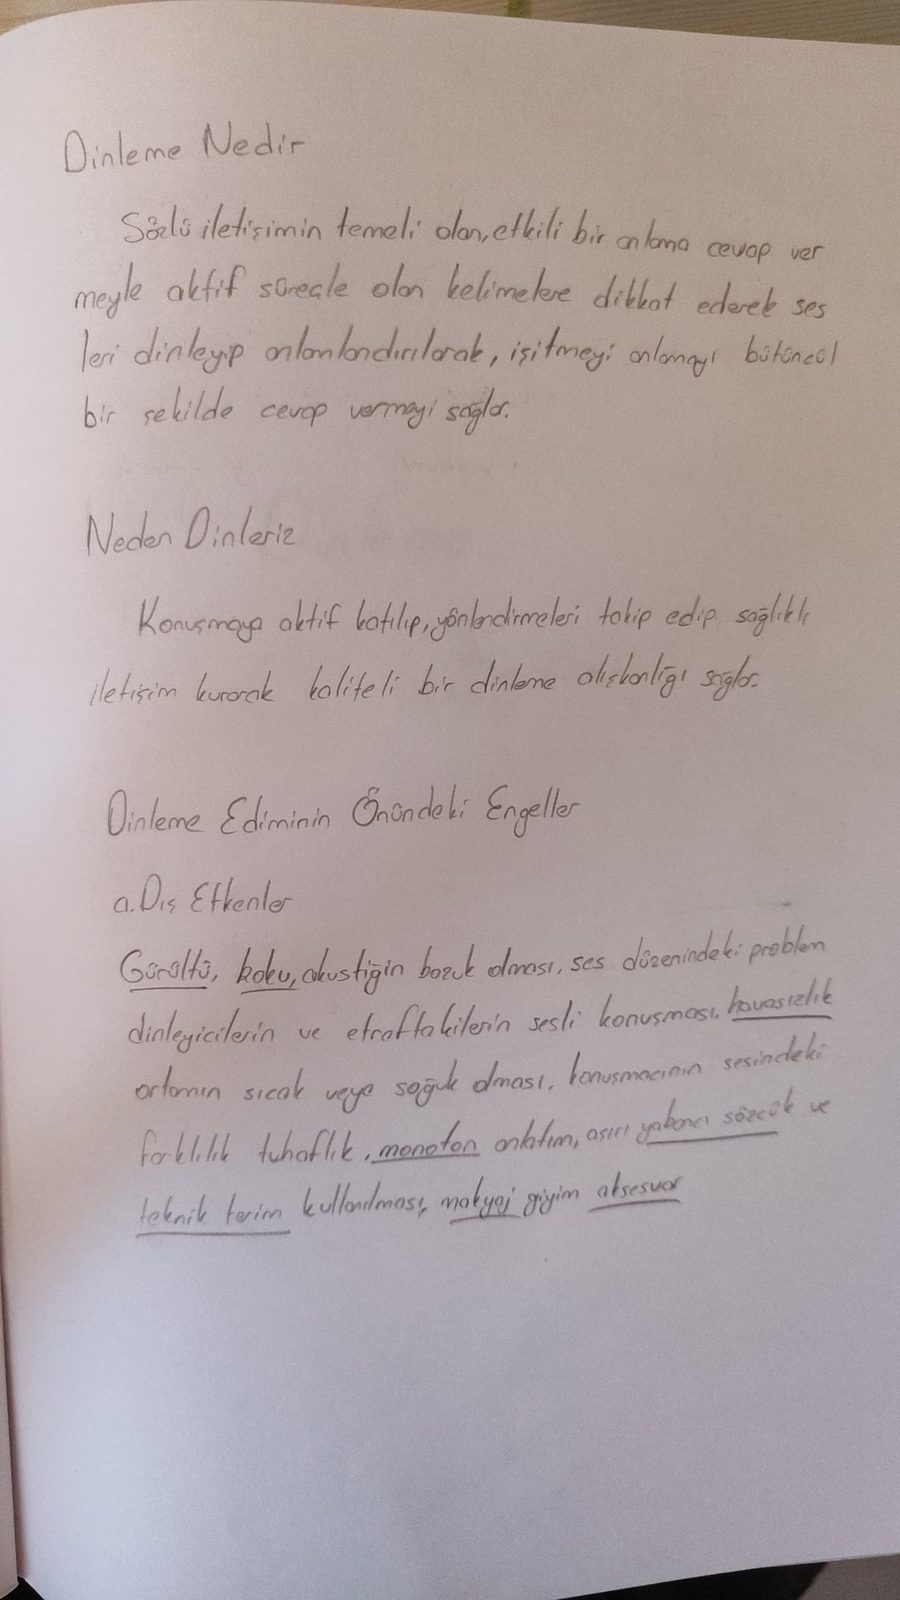 Dinleme Nedir
Sözlü iletişimin temeli olan, etkili bir anlama cevap ver
meyle aktif süreçle olan kelimelere dikkat ederek ses
leri dinleyip anlamlandırılarak, işitmeyi anlamayı bütüncül
bir şekilde cevap vermeyi sağlar.
Neden Dinleriz
Konuşmaya aktif katılıp, yönlendirmeleri takip edip sağlıklı
iletişim kurarak kaliteli bir dinleme alışkanlığı sağlar.
Dinleme Ediminin Önündeki Engeller
a. Dış Etkenler
Gürültü, koku, akustiğin bozuk olması, ses düzenindeki problem
dinleyicilerin ve etraftakilerin sesli konuşması, havasızlık
ortamın sıcak veya soğuk olması, konuşmacının sesindeki
farklılık tuhaflık, monoton anlatım, aşırı yabancı sözcük ve
teknik terim kullanılması, makyaj giyim aksesuar